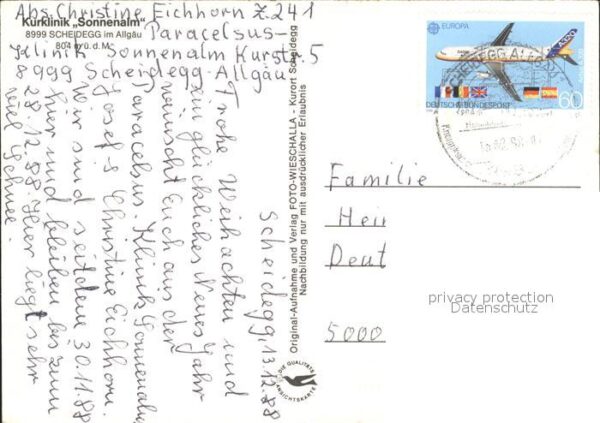 Abs. Christine Eichhorn Z. 241
Paracelsus-
Klinik Sonnenalm Kurstr. 5
8999 Scheidegg-Allgäu
Kurklinik „Sonnenalm“
8999 SCHEIDEGG im Allgäu
804 m ü. d. M.
Scheidegg, 13.12.88
Frohe Weihnachten und
ein glückliches Neues Jahr
wünscht Euch aus der
Paracelsus-Klinik Sonnenalm
Josef & Christine Eichhorn.
Wir sind seit dem 30.11.88
hier und bleiben bis zum
28.12.88. Hier liegt sehr
viel Schnee.
Original-Aufnahme und Verlag FOTO-WIESCHALLA - Kurort Scheidegg
Nachbildung nur mit ausdrücklicher Erlaubnis
DIE QUALITÄTS
ANSICHTSKARTE
EUROPA
A320
DEUTSCHE BUNDESPOST
60
SCHEIDEGG, ALLGÄU
Familie
Hein
Deut
5000
privacy protection
Datenschutz